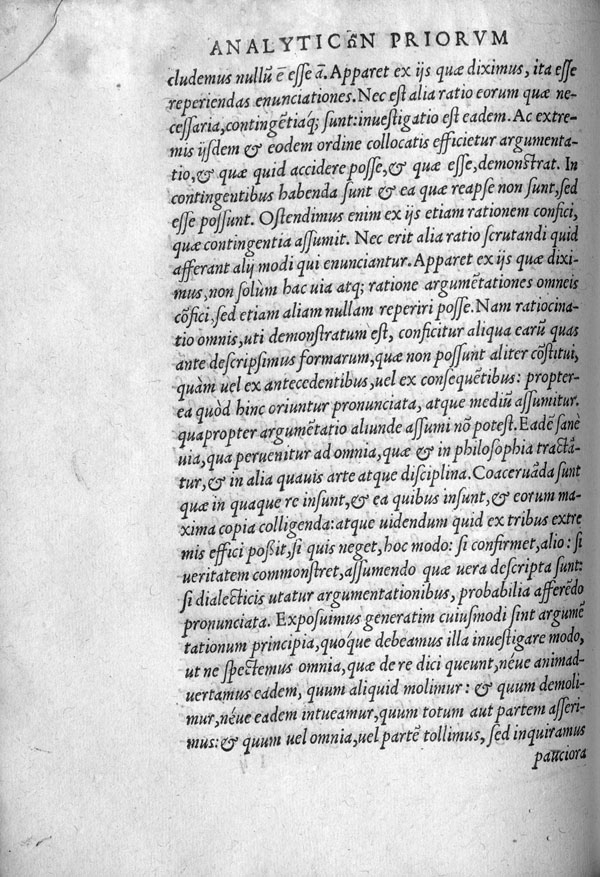 ANALYTICῶN PRIORVM
cludemus nullũ ẽ eſſe ã. Apparet ex ijs quæ diximus, ita eſſe
reperiendas enunciationes. Nec eſt alia ratio eorum quæ ne-
ceſſaria, contingẽtiaq́; ſunt: inueſtigatio eſt eadem. Ac extre-
mis ijſdem & eodem ordine collocatis efficietur argumenta-
tio, & quæ quid accidere poſſe, & quæ eſſe, demonſtrat. In
contingentibus habenda ſunt & ea quæ reapſe non ſunt, ſed
eſſe poſſunt. Oſtendimus enim ex ijs etiam rationem confici,
quæ contingentia aſſumit. Nec erit alia ratio ſcrutandi quid
afferant alij modi qui enunciantur. Apparet ex ijs quæ dixi-
mus, non ſolùm hac uia atq; ratione argumẽtationes omneis
cõfici, ſed etiam aliam nullam reperiri poſſe. Nam ratiocina-
tio omnis, uti demonſtratum eſt, conficitur aliqua earũ quas
ante deſcripſimus formarum, quæ non poſſunt aliter cõſtitui,
quàm uel ex antecedentibus, uel ex conſequẽtibus: propter-
ea quòd hinc oriuntur pronunciata, atque mediũ aſſumitur.
quapropter argumẽtatio aliunde aſſumi nõ poteſt. Eadẽ ſanè
uia, qua peruenitur ad omnia, quæ & in philoſophia tractã-
tur, & in alia quauis arte atque diſciplina. Coaceruãda ſunt
quæ in quaque re inſunt, & ea quibus inſunt, & eorum ma-
xima copia colligenda: atque uidendum quid ex tribus extre
mis effici poßit, ſi quis neget, hoc modo: ſi confirmet, alio: ſi
ueritatem commonſtret, aſſumendo quæ uera deſcripta ſunt:
ſi dialecticis utatur argumentationibus, probabilia afferẽdo
pronunciata. Expoſuimus generatim cuiuſmodi ſint argumẽ
tationum principia, quoq́ue debeamus illa inueſtigare modo,
ut ne ſpectemus omnia, quæ de re dici queunt, néue animad-
uertamus eadem, quum aliquid molimur: & quum demoli-
mur, néue eadem intueamur, quum totum aut partem aſſeri-
mus: & quum uel omnia, uel partẽ tollimus, ſed inquiramus
pauciora